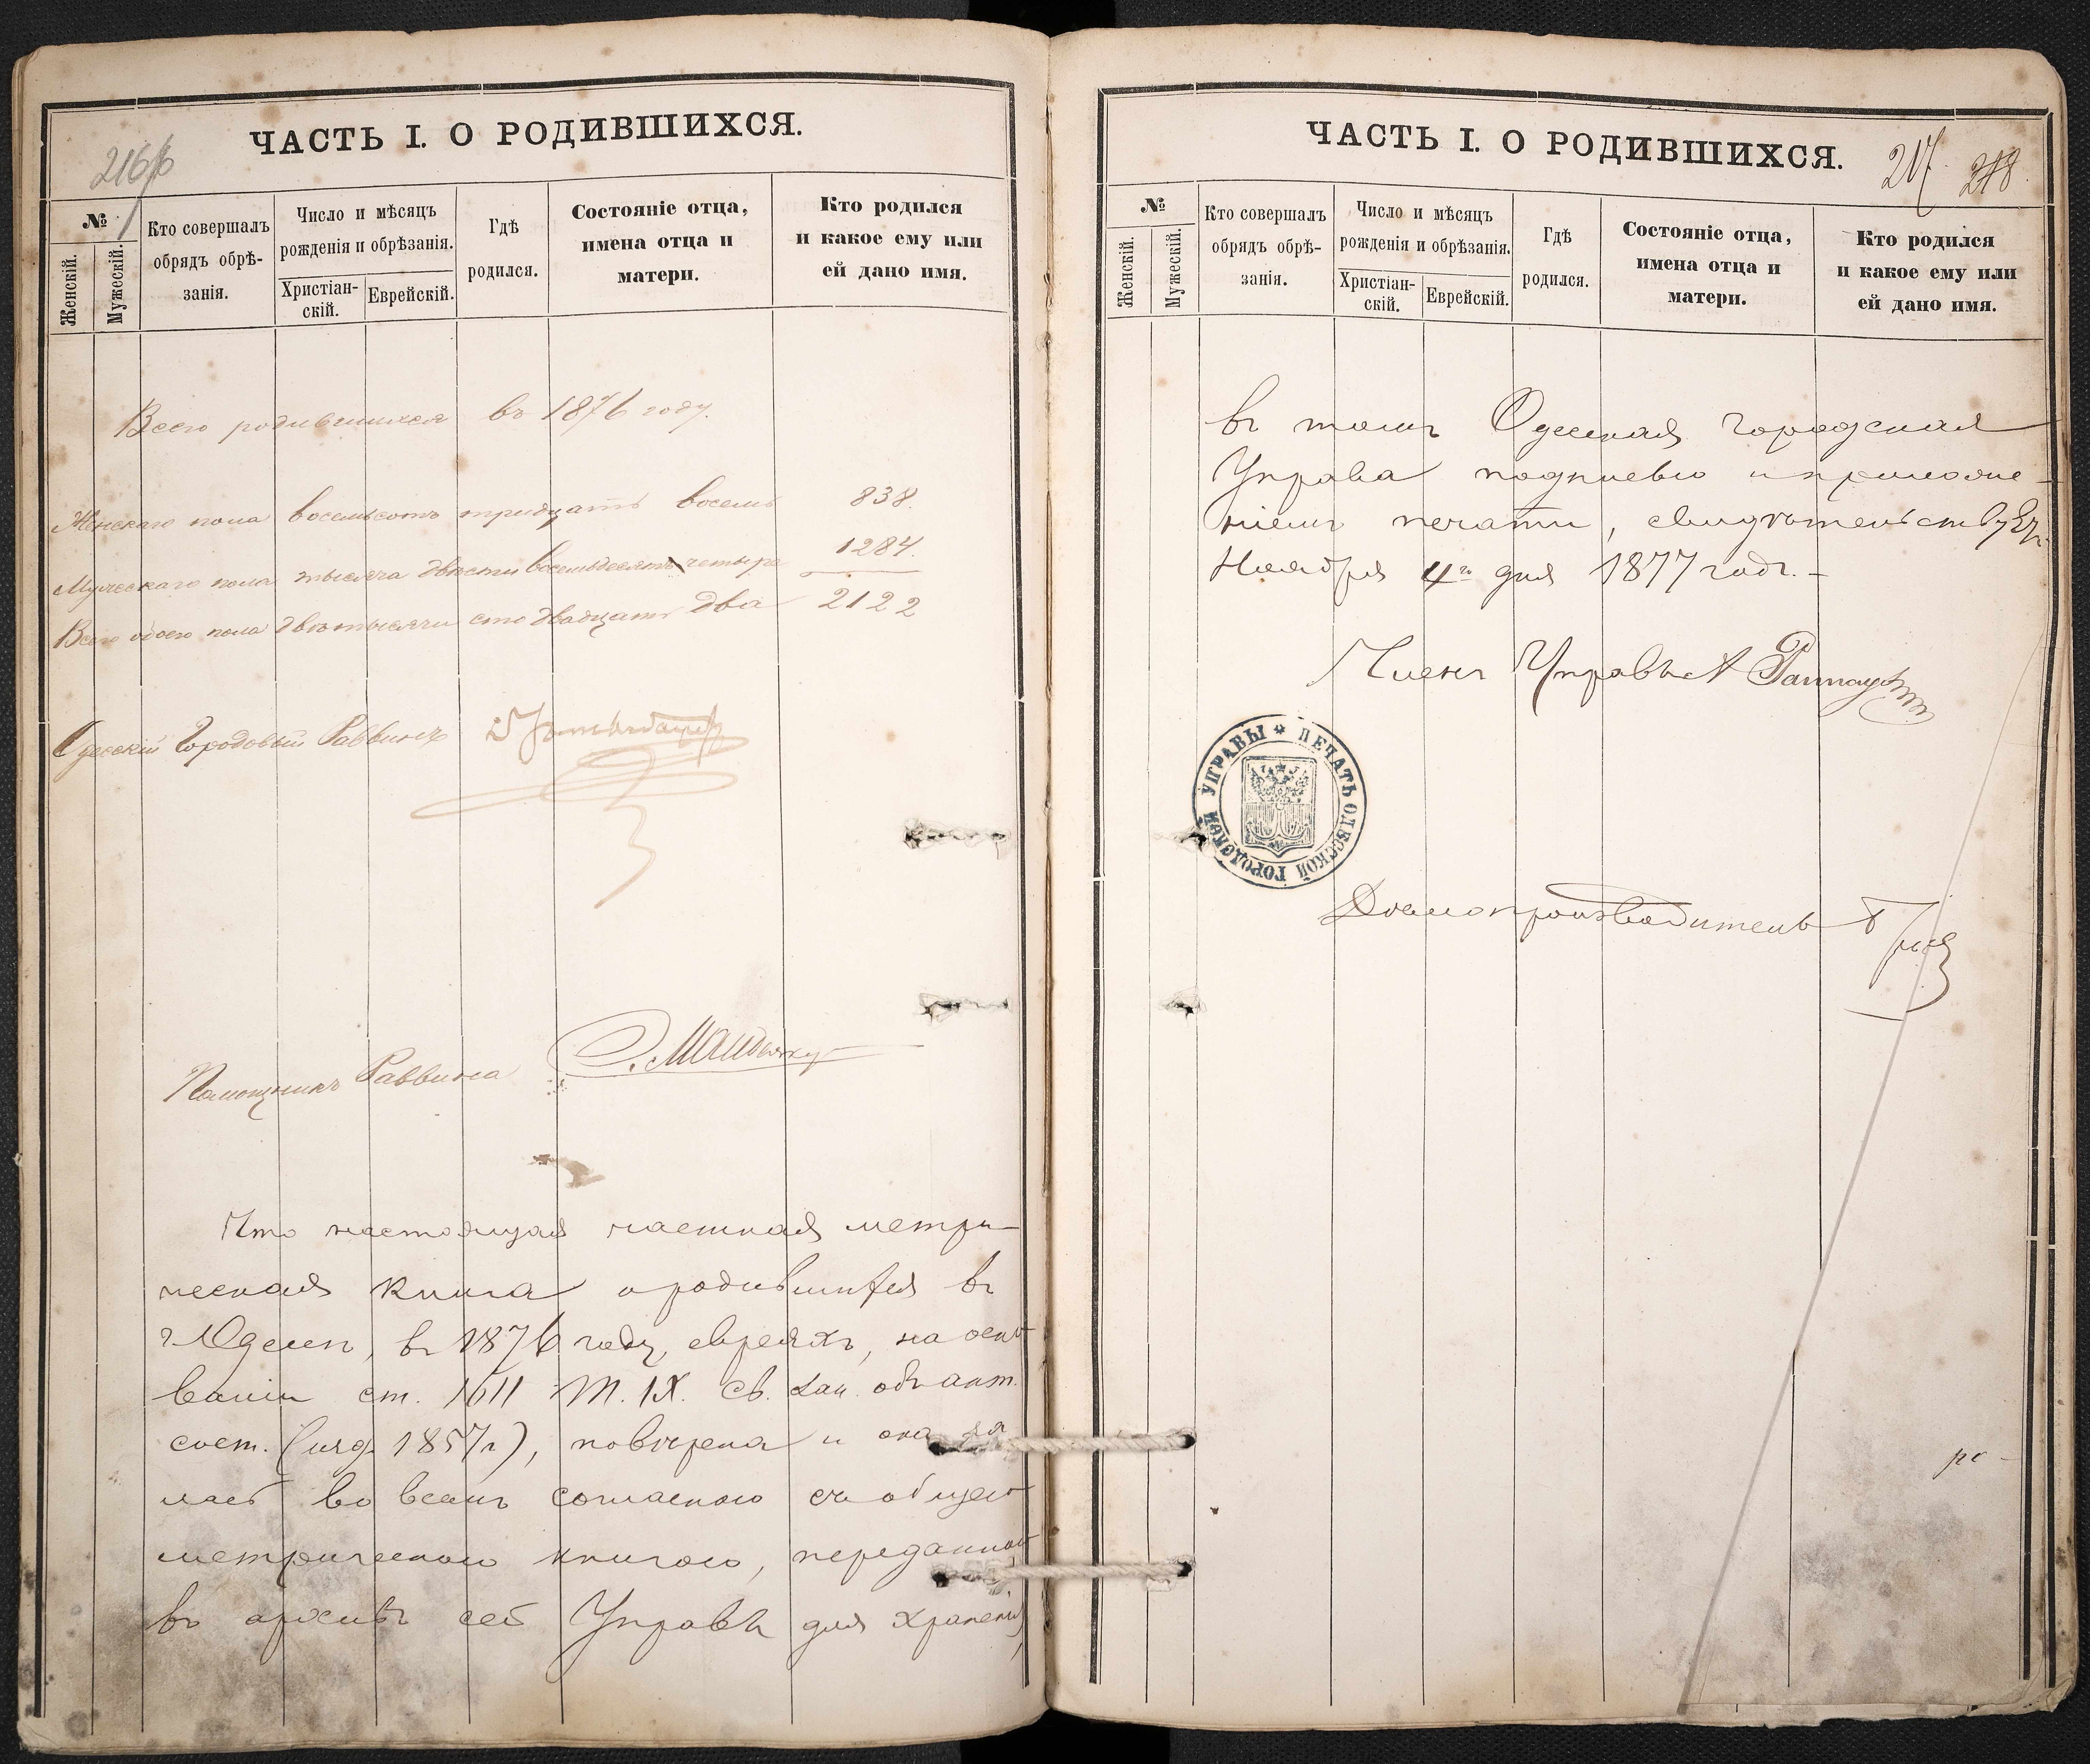 ЧАСТЬ I. О РОДИВШИХСЯ.
216
№
Женскій.
Мужескій.
Кто совершалъ обрядъ обрѣ-
занія.
Число и мѣсяцъ
рожденія и обрѣзанія.
Христіан-
скій.
Еврейскій.
Гдѣ
родился.
Состояніе отца,
имена отца и
матери.
Кто родился
и какое ему или
ей дано имя.
Всего родившихся въ 1876 году.
Женскаго пола восемьсотъ тридцать восемь 838.
Мужескаго пола тысяча двѣсти восемьдесятъ четыре 1284.
Всего обоего пола двѣ тысячи сто двадцать два 2122
Одесскій Городовый Раввинъ
Помощникъ Раввина
Что настоящая частная метри-
ческая книга о родившихся въ
г. Одессѣ, въ 1876 году, евреяхъ, на осно-
ваніи ст. 1611 Т. IX. Св. Зак. объ акт.
сост. (изд. 1857 г.), повѣрена и она
во всемъ согласною съ общею
метрическою книгою, переданною
въ архивъ сей Управы для храненія,
ЧАСТЬ I. О РОДИВШИХСЯ.
217 218
№
Женскій.
Мужескій.
Кто совершалъ
обрядъ обрѣ-
занія.
Число и мѣсяцъ
рожденія и обрѣзанія.
Христіан-
скій.
Еврейскій.
Гдѣ
родился.
Состояніе отца,
имена отца и
матери.
Кто родился
и какое ему или
ей дано имя.
въ томъ Одесская Городская
Управа подписью и приложе-
ніемъ печати, свидѣтельствуетъ
Ноября 4го дня 1877 года. -
Членъ Управы
ПЕЧАТЬ ОДЕССКОЙ ГОРОДСКОЙ УПРАВЫ
Дѣлопроизводитель
ро -